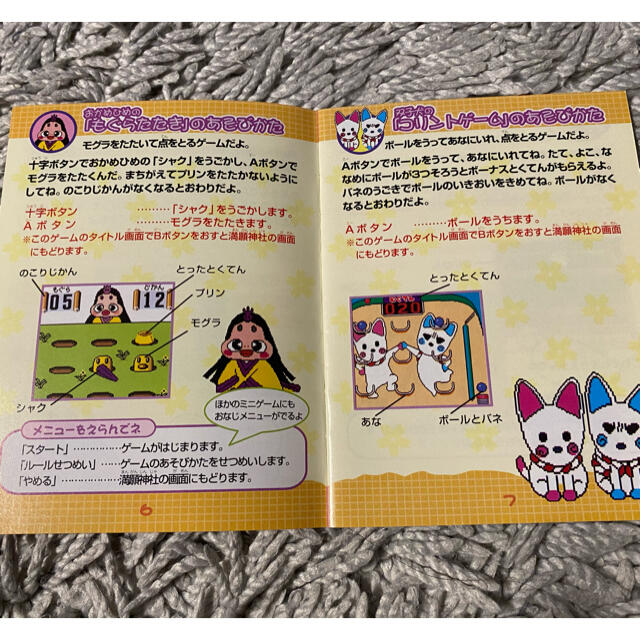 おかめひめの
「もぐらたたき」のあそびかた
モグラをたたいて点をとるゲームだよ。
十字ボタンでおかめひめの「シャク」をうごかし、Aボタンで
モグラをたたくんだ。まちがえてプリンをたたかないように
してね。のこりじかんがなくなるとおわりだよ。
十字ボタン ………「シャク」をうごかします。
Aボタン ………モグラをたたきます。
※このゲームのタイトル画面でBボタンをおすと満願神社の画面
にもどります。
のこりじかん
とったとくてん
もぐら
05
じかん
12
プリン
モグラ
シャク
ほかのミニゲームにも
おなじメニューがでるよ
メニューをえらんでネ
「スタート」 ……………ゲームがはじまります。
「ルールせつめい」 ……ゲームのあそびかたをせつめいします。
「やめる」 ………………満願神社の画面にもどります。
6
「コリントゲーム」のあそびかた
ボールをうってあなにいれ、点をとるゲームだよ。
Aボタンでボールをうって、あなにいれてね。たて、よこ、な
なめにボールが3つそろうとボーナスとくてんがもらえるよ。
バネのうごきでボールのいきおいをきめてね。ボールがなく
なるとおわりだよ。
Aボタン ………ボールをうちます。
※このゲームのタイトル画面でBボタンをおすと満願神社の画面
にもどります。
とったとくてん
020
あな
ボールとバネ
7